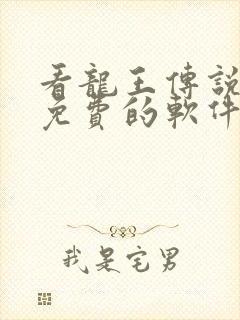 看龍王傳說
免費的軟件
我是宅男